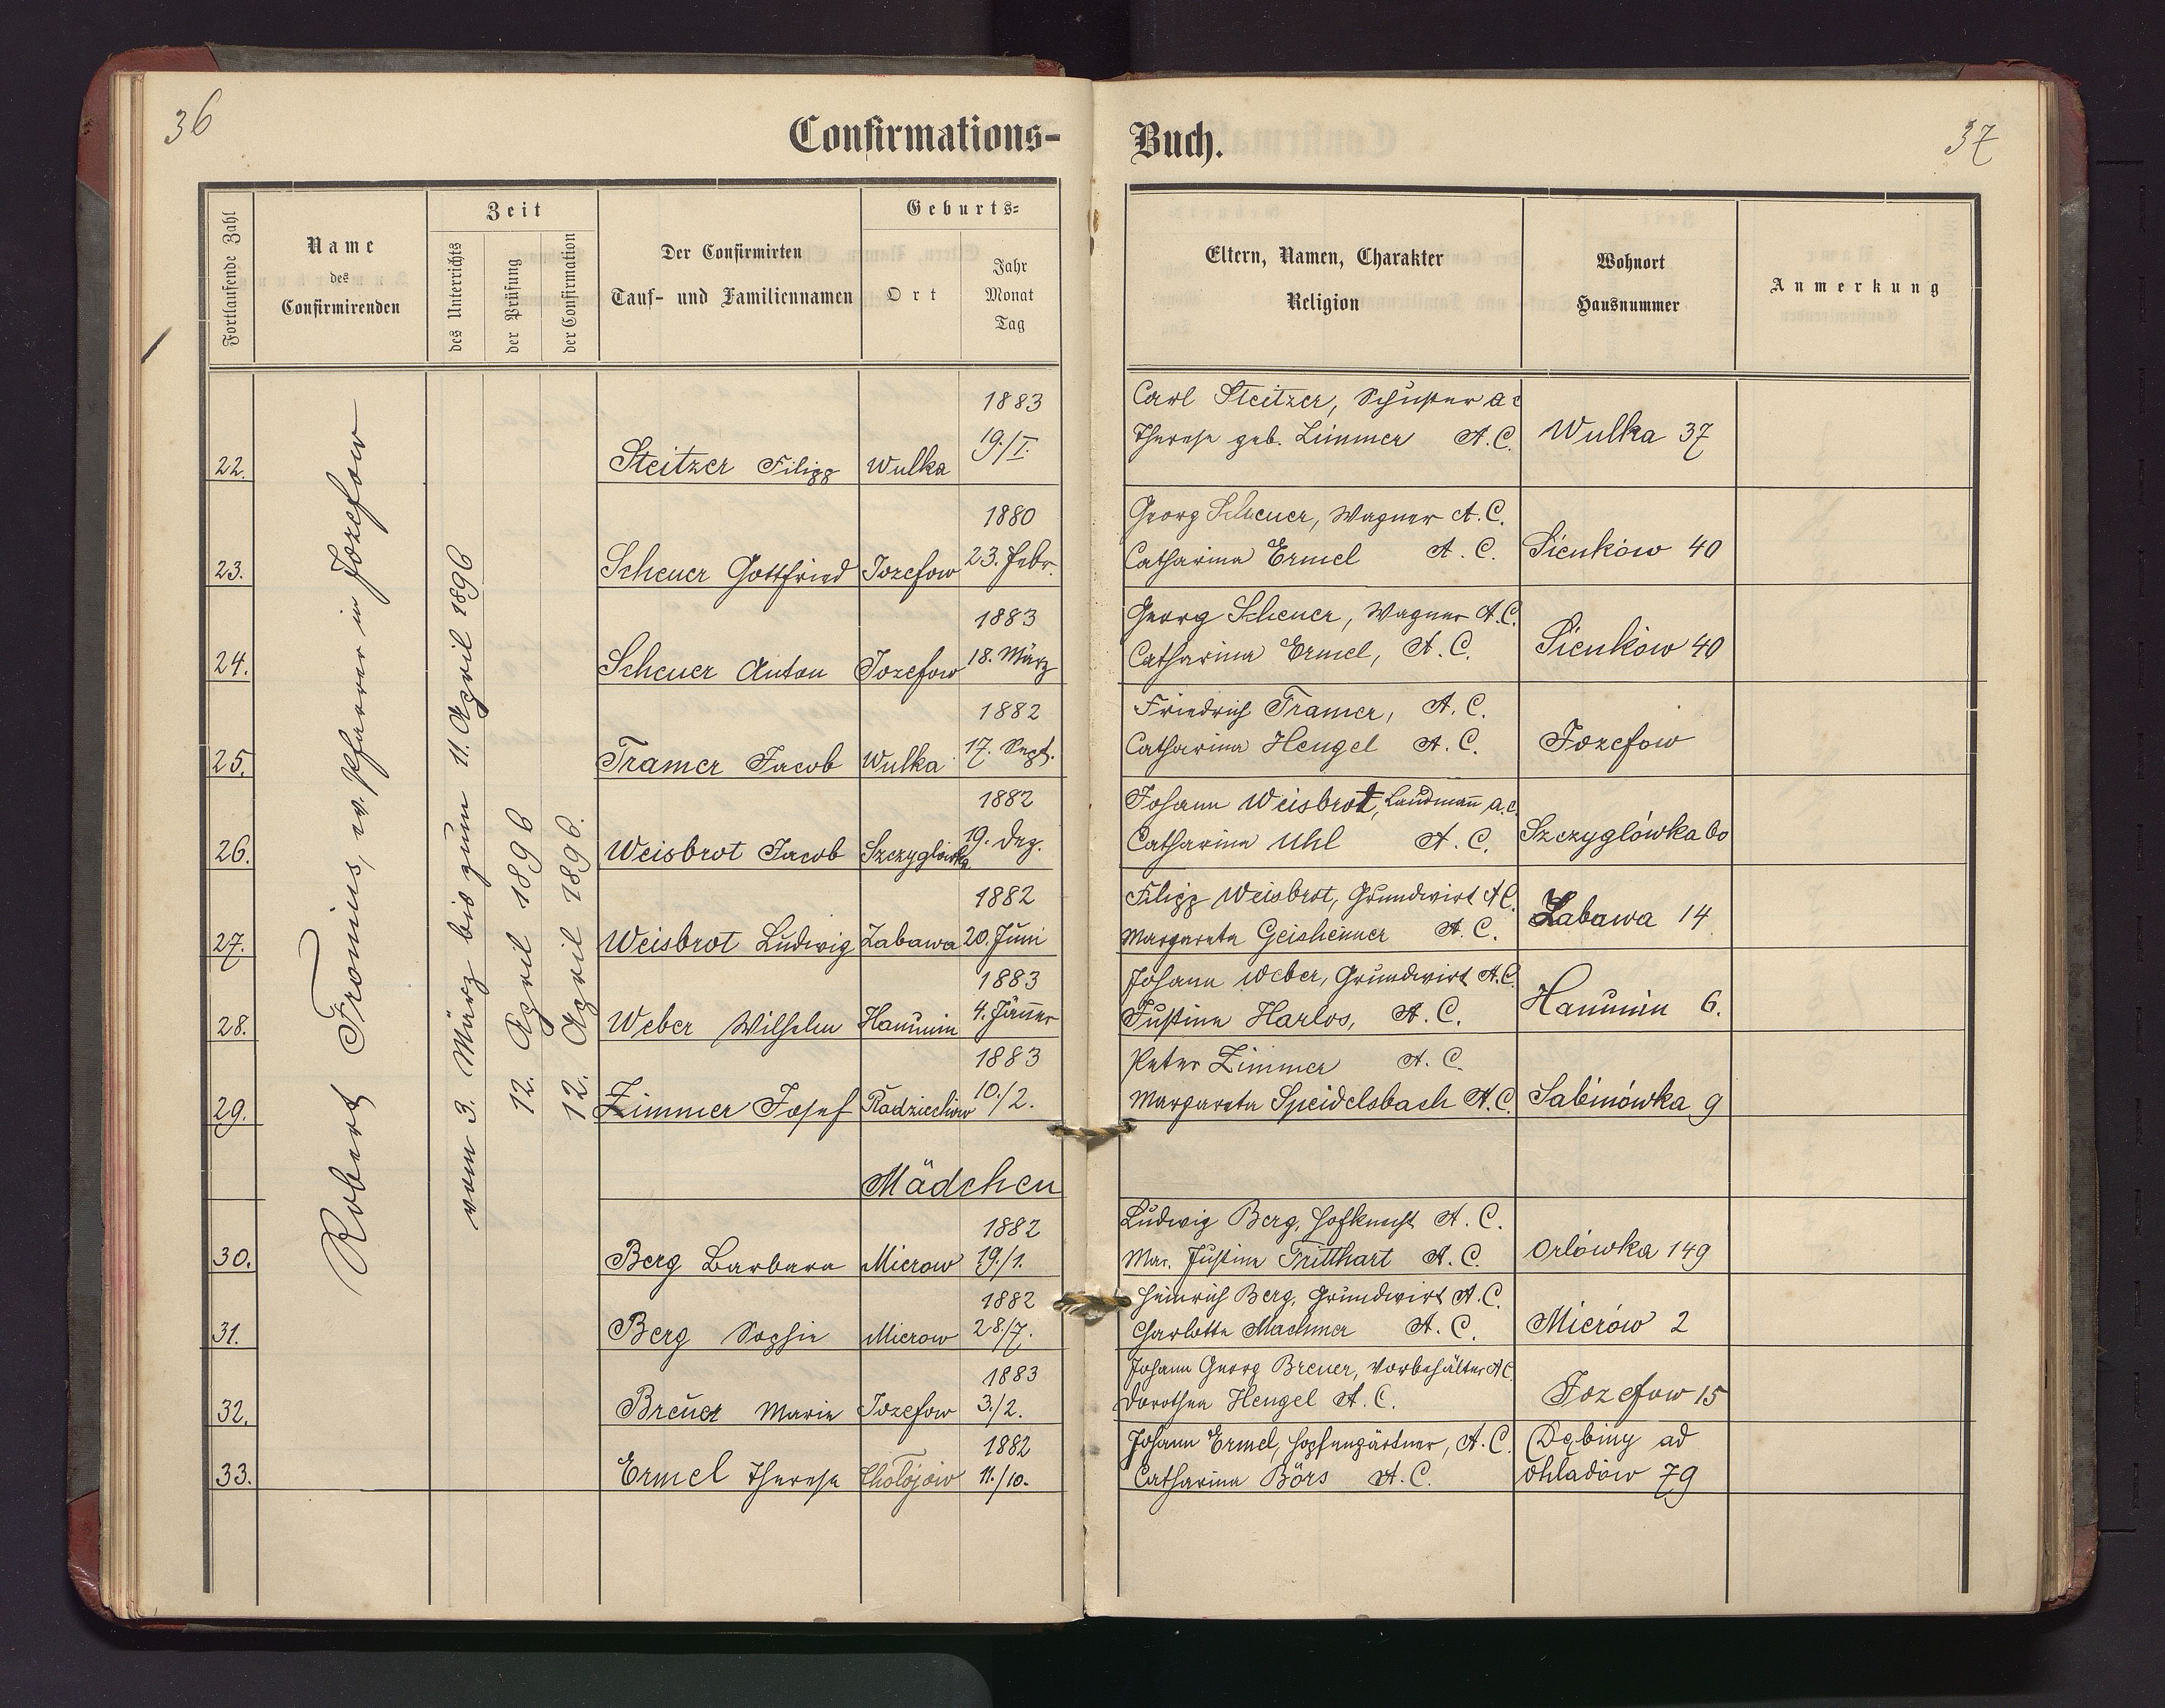 36
Confirmations-
Buch.
37
Fortlaufende Zahl
Name
des
Confirmirenden
Zeit
des Unterrichts
der Prüfung
der Confirmation
Der Confirmirten
Tauf- und Familiennamen
Geburts-
Ort
Jahr
Monat
Tag
Eltern, Namen, Charakter
Religion
Wohnort
Hausnummer
Anmerkung
Robert Fronius, ev. Pfarrer in Jozefow
vom 3. März bis zum 11. April 1896
12. April 1896
12. April 1896.
1883
Carl Steitzer, Schuster A C
22. Steitzer Filipp Wulka 19./I.
Therese geb. Zimmer A. C. Wulka 37
1880
Georg Scheuer, Wagner A. C.
23. Scheuer Gottfried Jozefow 23. Febr.
Catharina Ermel A. C. Sienków 40
1883
Georg Scheuer, Wagner A. C.
24. Scheuer Anton Jozefow 18. März
Catharina Ermel, A. C. Sienków 40
1882
Friedrich Tramer, A. C.
25. Tramer Jacob Wulka 17. Sept.
Catharina Hengel A. C. Jozefow
1882
Johann Weisbrot, Landmann A. C.
26. Weisbrot Jacob Szczyglówka 19. Dez.
Catharina Uhl A. C. Szczyglówka
1882
Filipp Weisbrot, Grundwirt A C.
27. Weisbrot Ludwig Zabawa 20. Juni
Margareta Geisheimer A. C. Zabawa 14
1883
Johann Weber, Grundwirt A. C.
28. Weber Wilhelm Hanunin 4. Jänner
Justina Harlos, A. C. Hanunin 6.
1883
Peter Zimmer A. C.
29. Zimmer Josef Radziechow 10./2.
Margareta Speidelsbach A. C. Sabinówka 9
Mädchen
1882
Ludwig Berg, Hofknecht A. C.
30. Berg Barbara Mierow 19./1.
Mar. Justina Tritthart A. C. Orlówka 149
1882
Heinrich Berg, Grundwirt A. C.
31. Berg Sophie Mierow 28./7.
Charlotte Machmer A. C. Mierów 2
1883
Johann Georg Breuer, Vorbehälter A C.
32. Breuer Marie Jozefow 3./2.
Dorothea Hengel A. C. Jozefow 15
1882
Johann Ermel, Hopfengärtner, A. C. Dębiny ad
33. Ermel Therese Cholojów 11./10.
Catharina Börs A. C. Ohladów 79